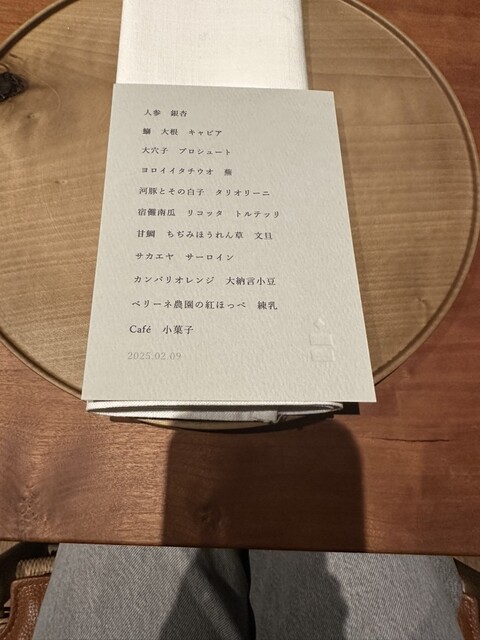 人参　銀杏
鰤　大根　キャビア
大穴子　プロシュート
ヨロイイタチウオ　蕪
河豚とその白子　タリオリーニ
宿儺南瓜　リコッタ　トルテッリ
甘鯛　ちぢみほうれん草　文旦
サカエヤ　サーロイン
カンパリオレンジ　大納言小豆
ベリーネ農園の紅ほっぺ　練乳
Café　小菓子
2025.02.09